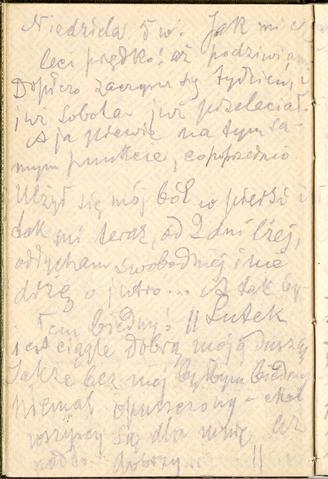 Niedziela 5 w. Jak mi
leci prędko! aż podziwiam
Dopiero zaczyna się tydzień,
już sobota już przeleciała
A ja prawie na tym sa-
mym punkcie, co poprzednio
Ulżył się mój ból w piersi i
tak mi teraz, od 2 dni lżej,
oddycham swobodniej i nie
drżę o jutro... A tak by-
łam biedny! || Lutek
jest ciągle dobrą moją duszą
Jakże bez niej byłbym biedny
niemal opuszczony - choć
wszyscy są dla mnie też
dobrzy... ||